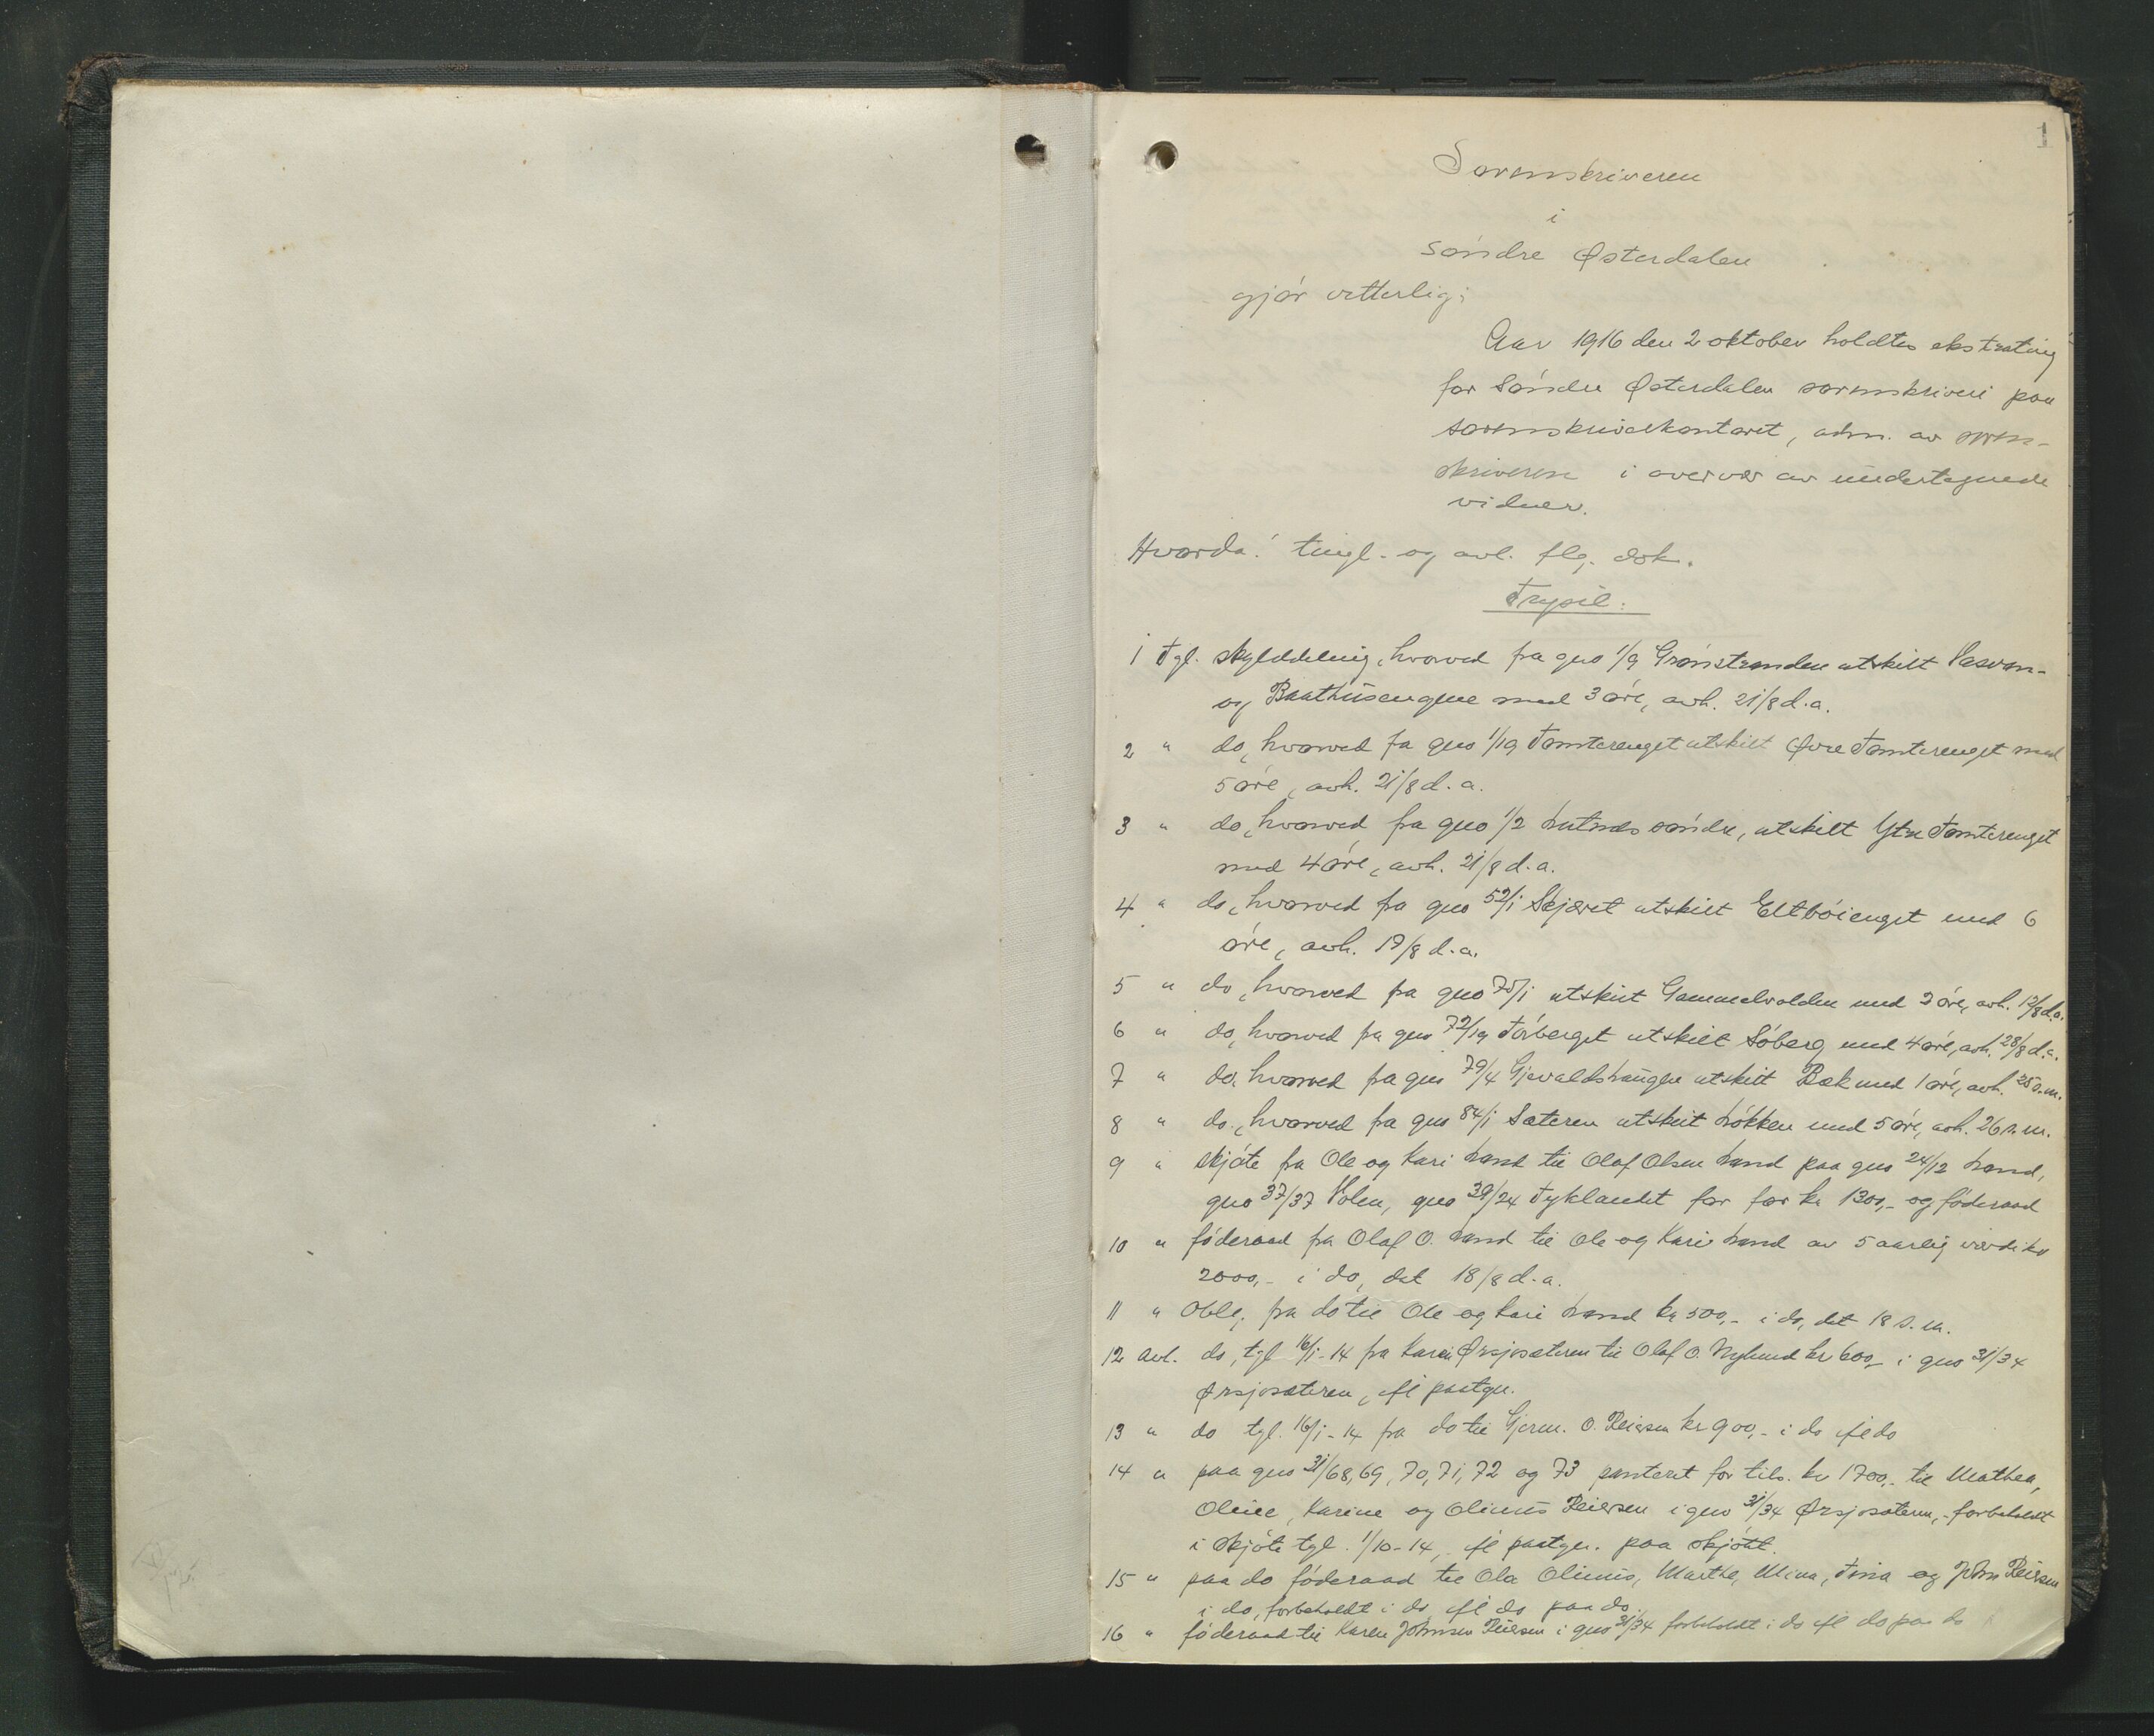 1
Sorenskriveren
i
Søndre Østerdalen
gjør vitterlig:
Aar 1916 den 2 oktober holdtes ekstrating
for Søndre Østerdalen sorenskriveri paa
sorenskriverkontoret, adm. av soren-
skriveren i overvær av undertegnede
vidner.
Hvorda: tingl. og avl. flg. dok.
Trysil:
1 Tgl. skylddeling, hvorved fra gno 1/9 Grønstranden utskilt
og Baathusengene med 3 øre, avh. 21/8 d.a.
2 " do, hvorved fra gno 1/19 Tomterenget utskilt Øvre Tomterenget med
5 øre, avh. 21/8 d.a.
3 " do, hvorved fra gno 1/2 Lutnes søndre, utskilt Ytre Tomterenget
med 4 øre, avh. 21/8 d.a.
4 " do, hvorved fra gno 52/1 Skjæret utskilt Eltbøienget med 6
øre, avh. 17/8 d.a.
5 " do, hvorved fra gno 75/1 utskilt Gammelvolden med 2 øre, avh. 12/8 d.a.
6 " do, hvorved fra gno 72/19 Tørberget utskilt Søberg med 4 øre, avh. 28/8 d.a.
7 " do, hvorved fra gno 79/4 Gjevaldshaugen utskilt Bæk med 1 øre, avh. 25 s.m.
8 " do., hvorved fra gno 84/1 Sæteren utskilt Løkken med 5 øre, avh. 26 s.m.
9 " skjøte fra Ole og Kari Lund til Olaf Olsen Lund paa gno 24/12 Lund,
gno 37/37 Volen, gno 39/24 Tyklandet for før kr 1300,- og føderaad
10 " føderaad fra Olaf O. Lund til Ole og Kari Lund av 5 aarlig værdi kr
2000,- i do, dat 18/8 d.a.
11 " Oblg. fra do til Ole og Kari Lund kr 500,- i do, dat 18 s.m.
12 Avl. do, tgl 16/1-14 fra Karen Ørsjosæteren til Olaf O. Nylund kr 600,- i gno 31/34
Ørsjosæteren, ifl paategn.
13 " do tgl. 16/1-14 fra do til Gjerm. O. Reiersen kr 900,- i do ifl do
14 " paa gno 31/68, 69, 70, 71, 72 og 73 panteret for tils. kr 1700,- til Mathea,
Karine og Olinus Reiersen i gno 31/34 Ørsjosæteren, forbeholdt
i skjøte tgl. 1/10-14, ifl paategn. paa skjøtet.
15 " paa do føderaad til Ola Olinus, Marthe, Mina, Tina og John Reiersen
i do, forbeholdt i do ifl do paa do.
16 " føderaad til Karen Johnsen Reiersen i gno 31/34 forbeholdt i do ifl do paa do